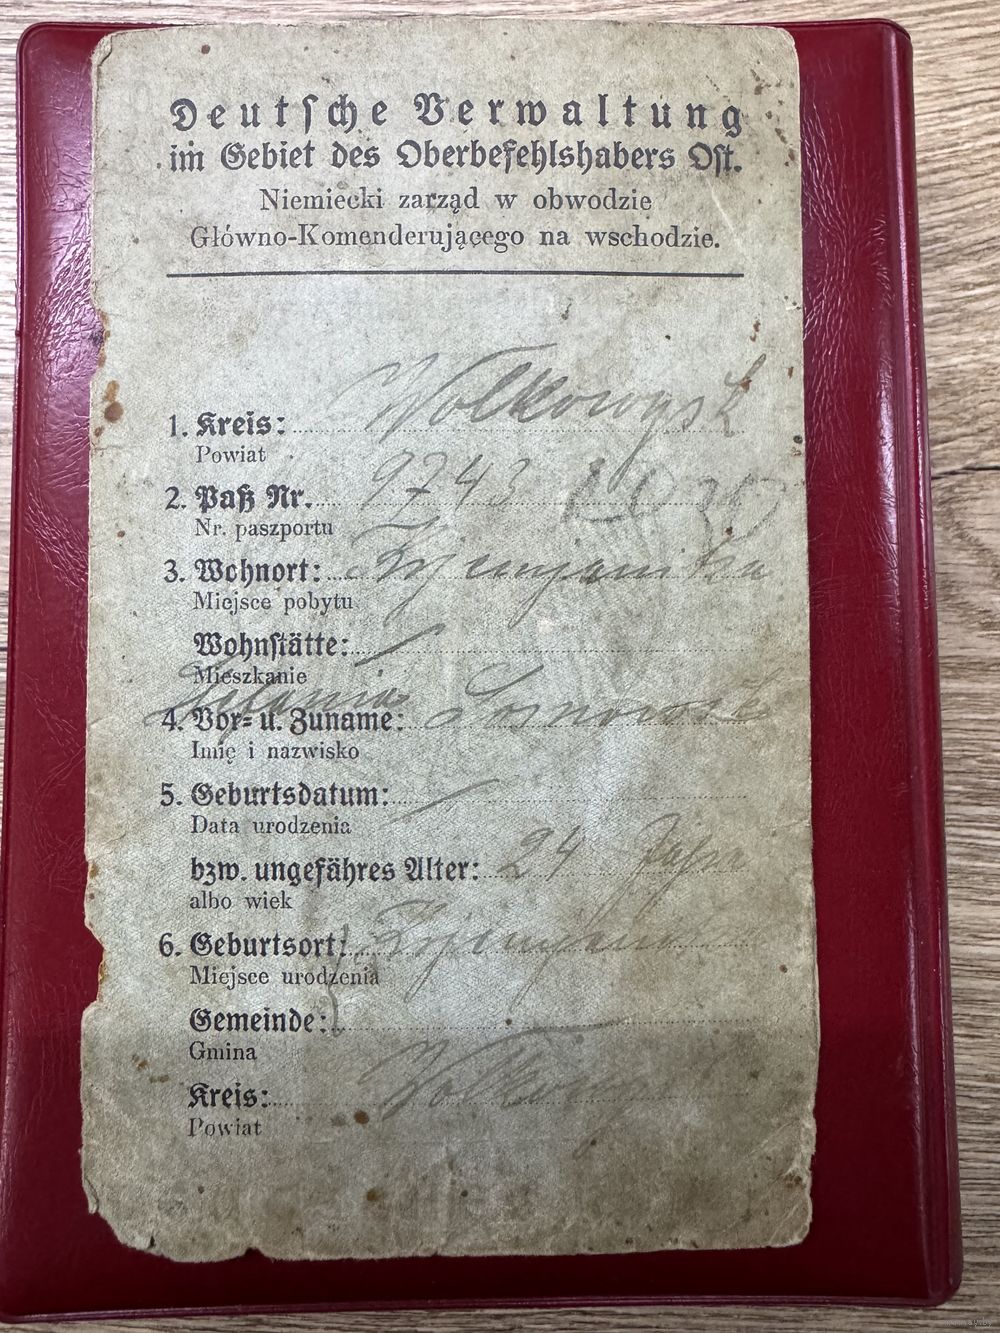 Deutsche Verwaltung
im Gebiet des Oberbefehlshabers Ost.
Niemiecki zarząd w obwodzie
Główno-Komenderującego na wschodzie.
1. Kreis: Wolkowysk
Powiat
2. Paß Nr. 9743
Nr. paszportu
3. Wohnort:
Miejsce pobytu
Wohnstätte:
Mieszkanie
4. Vor- u. Zuname:
Imię i nazwisko
5. Geburtsdatum:
Data urodzenia
bzw. ungefähres Alter: 24 Jahre
albo wiek
6. Geburtsort:
Miejsce urodzenia
Gemeinde:
Gmina
Kreis:
Powiat